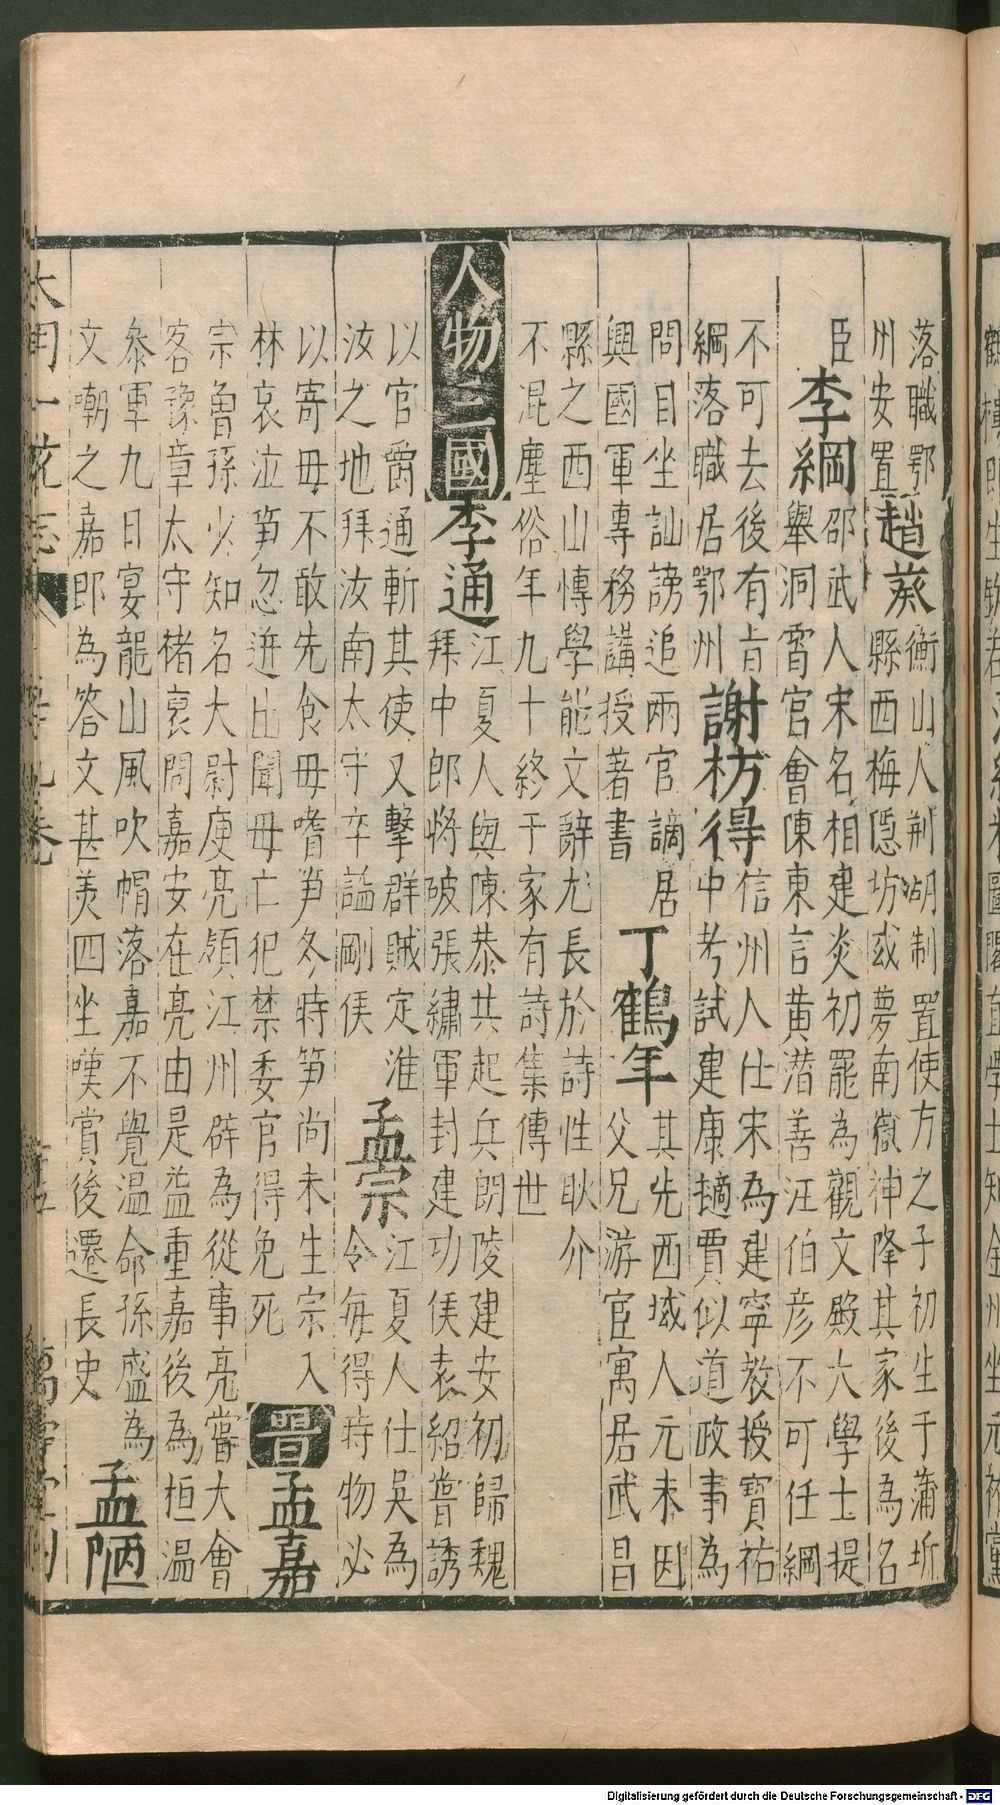 落職鄂
州安置
趙葵
衡山人荊湖制置使方之子初生于蒲圻
縣西梅隱坊或夢南嶽神降其家後為名
臣
李綱
邵武人宋名相建炎初罷為觀文殿大學士提
舉洞霄宮會陳東言黃潛善汪伯彥不可任綱
不可去後有旨
綱落職居鄂州
謝枋得
信州人仕宋為建寧教授寶祐
中考試建康擿賈似道政事為
問目坐訕謗追兩官謫居
興國軍專務講授著書
丁鶴年
其先西域人元末因
父兄游宦寓居武昌
縣之西山愽學能文辭尤長於詩性耿介
不混塵俗年九十終于家有詩集傳世
人物三國
李通
江夏人與陳恭共起兵朗陵建安初歸魏
拜中郎將破張繡軍封建功侯袁紹嘗誘
以官爵通斬其使又擊群賊定淮
汝之地拜汝南太守卒謚剛侯
孟宗
江夏人仕吳為
令每得時物必
以寄母不敢先食母嗜笋冬時笋尚未生宗入
林哀泣笋忽迸出聞母亡犯禁委官得免死
晉
孟嘉
宗曾孫少知名大尉庾亮領江州辟為從事亮嘗大會
客豫章太守褚裒問嘉安在亮由是益重嘉後為桓溫
叅軍九日宴龍山風吹帽落嘉不覺溫命孫盛為
文嘲之嘉即為答文甚美四坐嘆賞後遷長史
孟陋
Digitalisierung gefördert durch die Deutsche Forschungsgemeinschaft - DFG